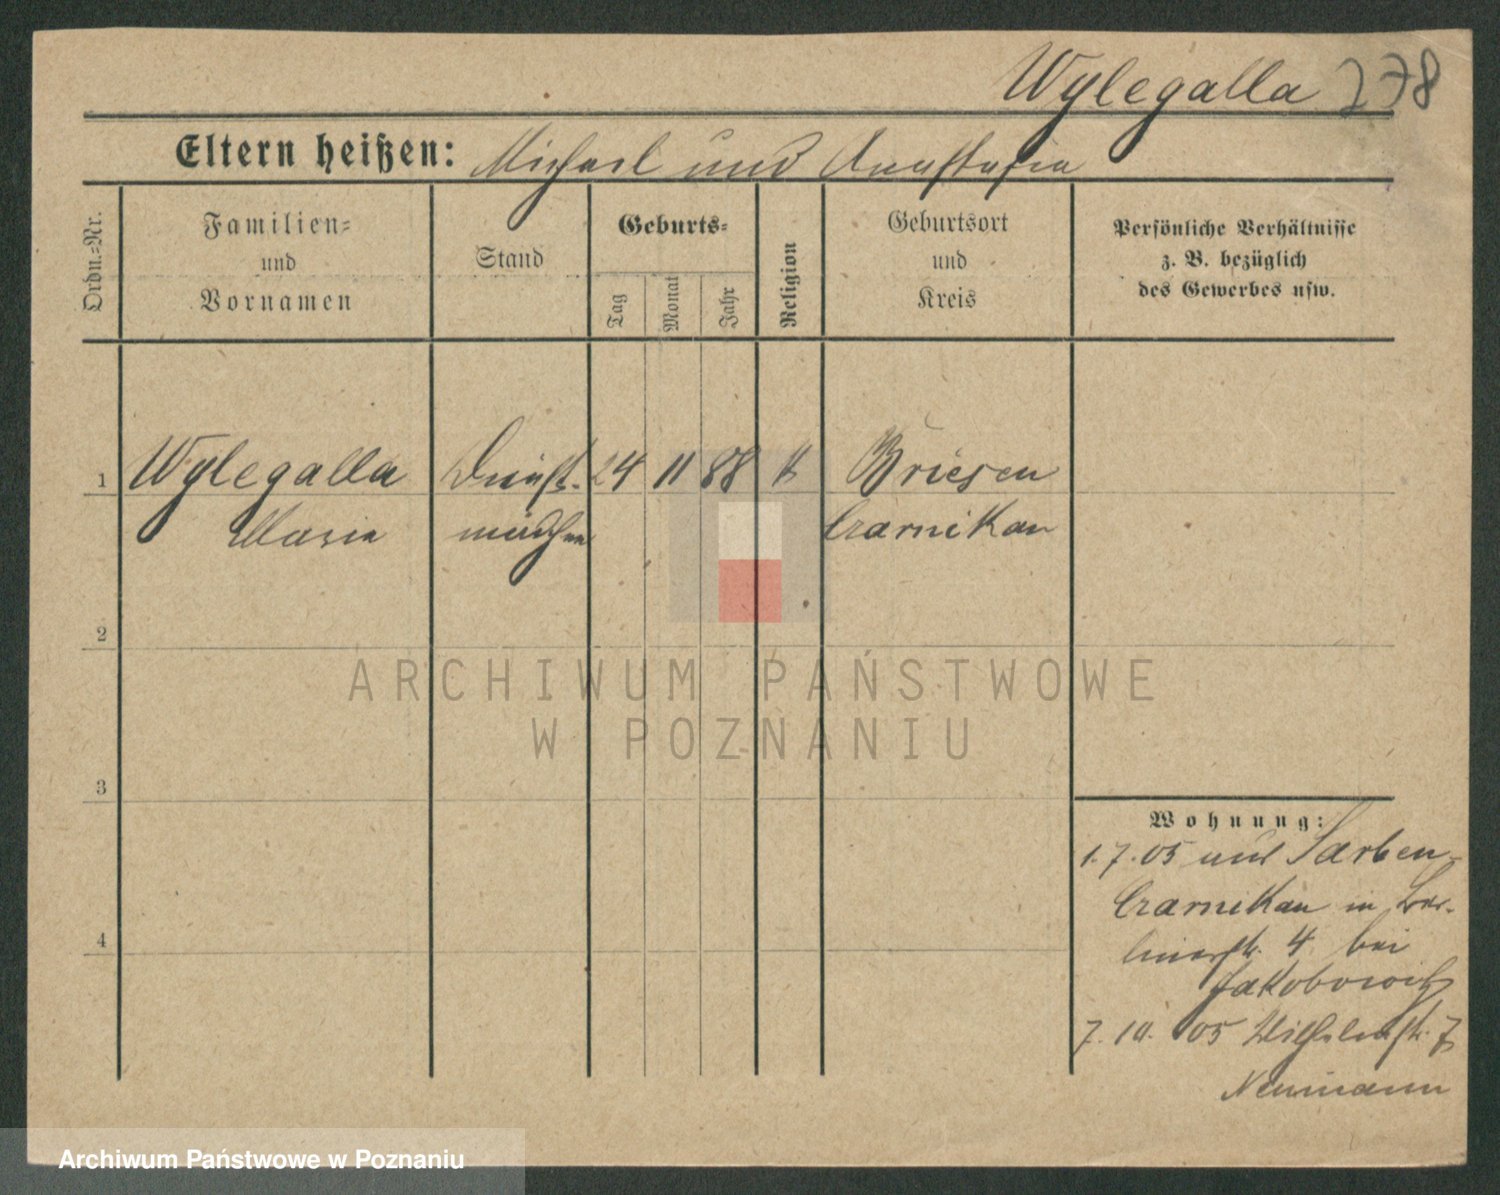 Wylegalla 278
Eltern heißen: Michael und Anastasia
Ordn.-Nr.
Familien-
und
Vornamen
Stand
Geburts-
Tag
Monat
Jahr
Religion
Geburtsort
und
Kreis
Persönliche Verhältnisse
z. B. bezüglich
des Gewerbes usw.
1 Wylegalla Dienst- 24 11 88 k Briesen
Marie mädchen Czarnikau
2
3
4
Wohnung:
1.7.05 aus Sarben-
Czarnikau in Ber-
linerstr. 4 bei
Jakobowitz
7. 10. 05 Wilhelmstr. 7
Neumann
ARCHIWUM PAŃSTWOWE
W POZNANIU
Archiwum Państwowe w Poznaniu